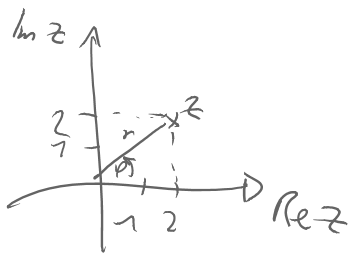 Im z
2
z
r
1
φ
1 2
Re z